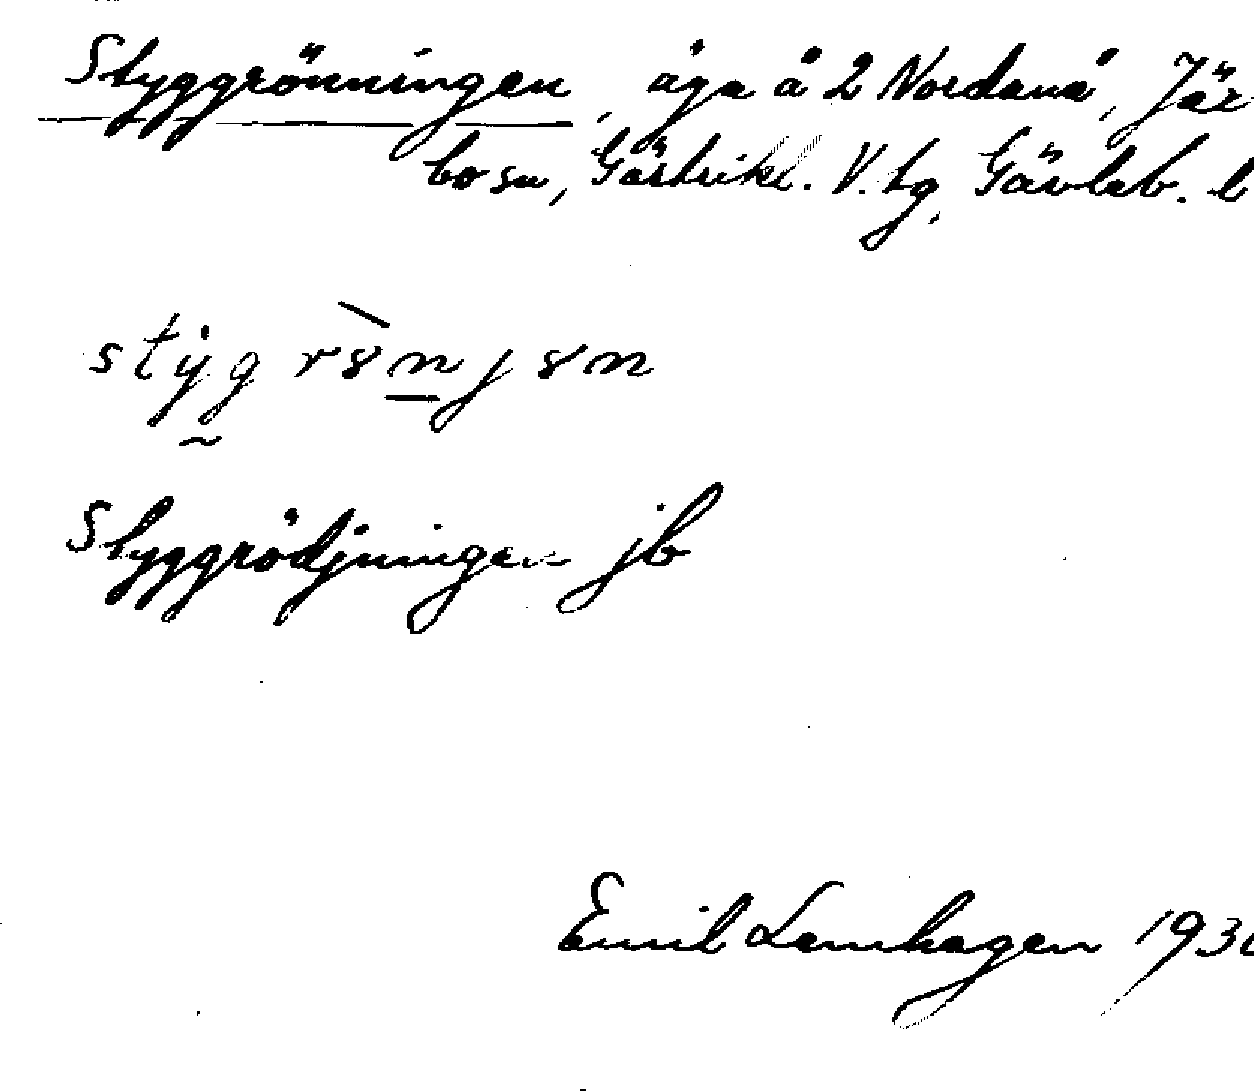 Styggrönningen, äga å 2 Nordanå, Jär
bo sn, Gästrikl. V. tg, Gävleb. l
Styggrödjningen jb
Emil Lennhagen 193